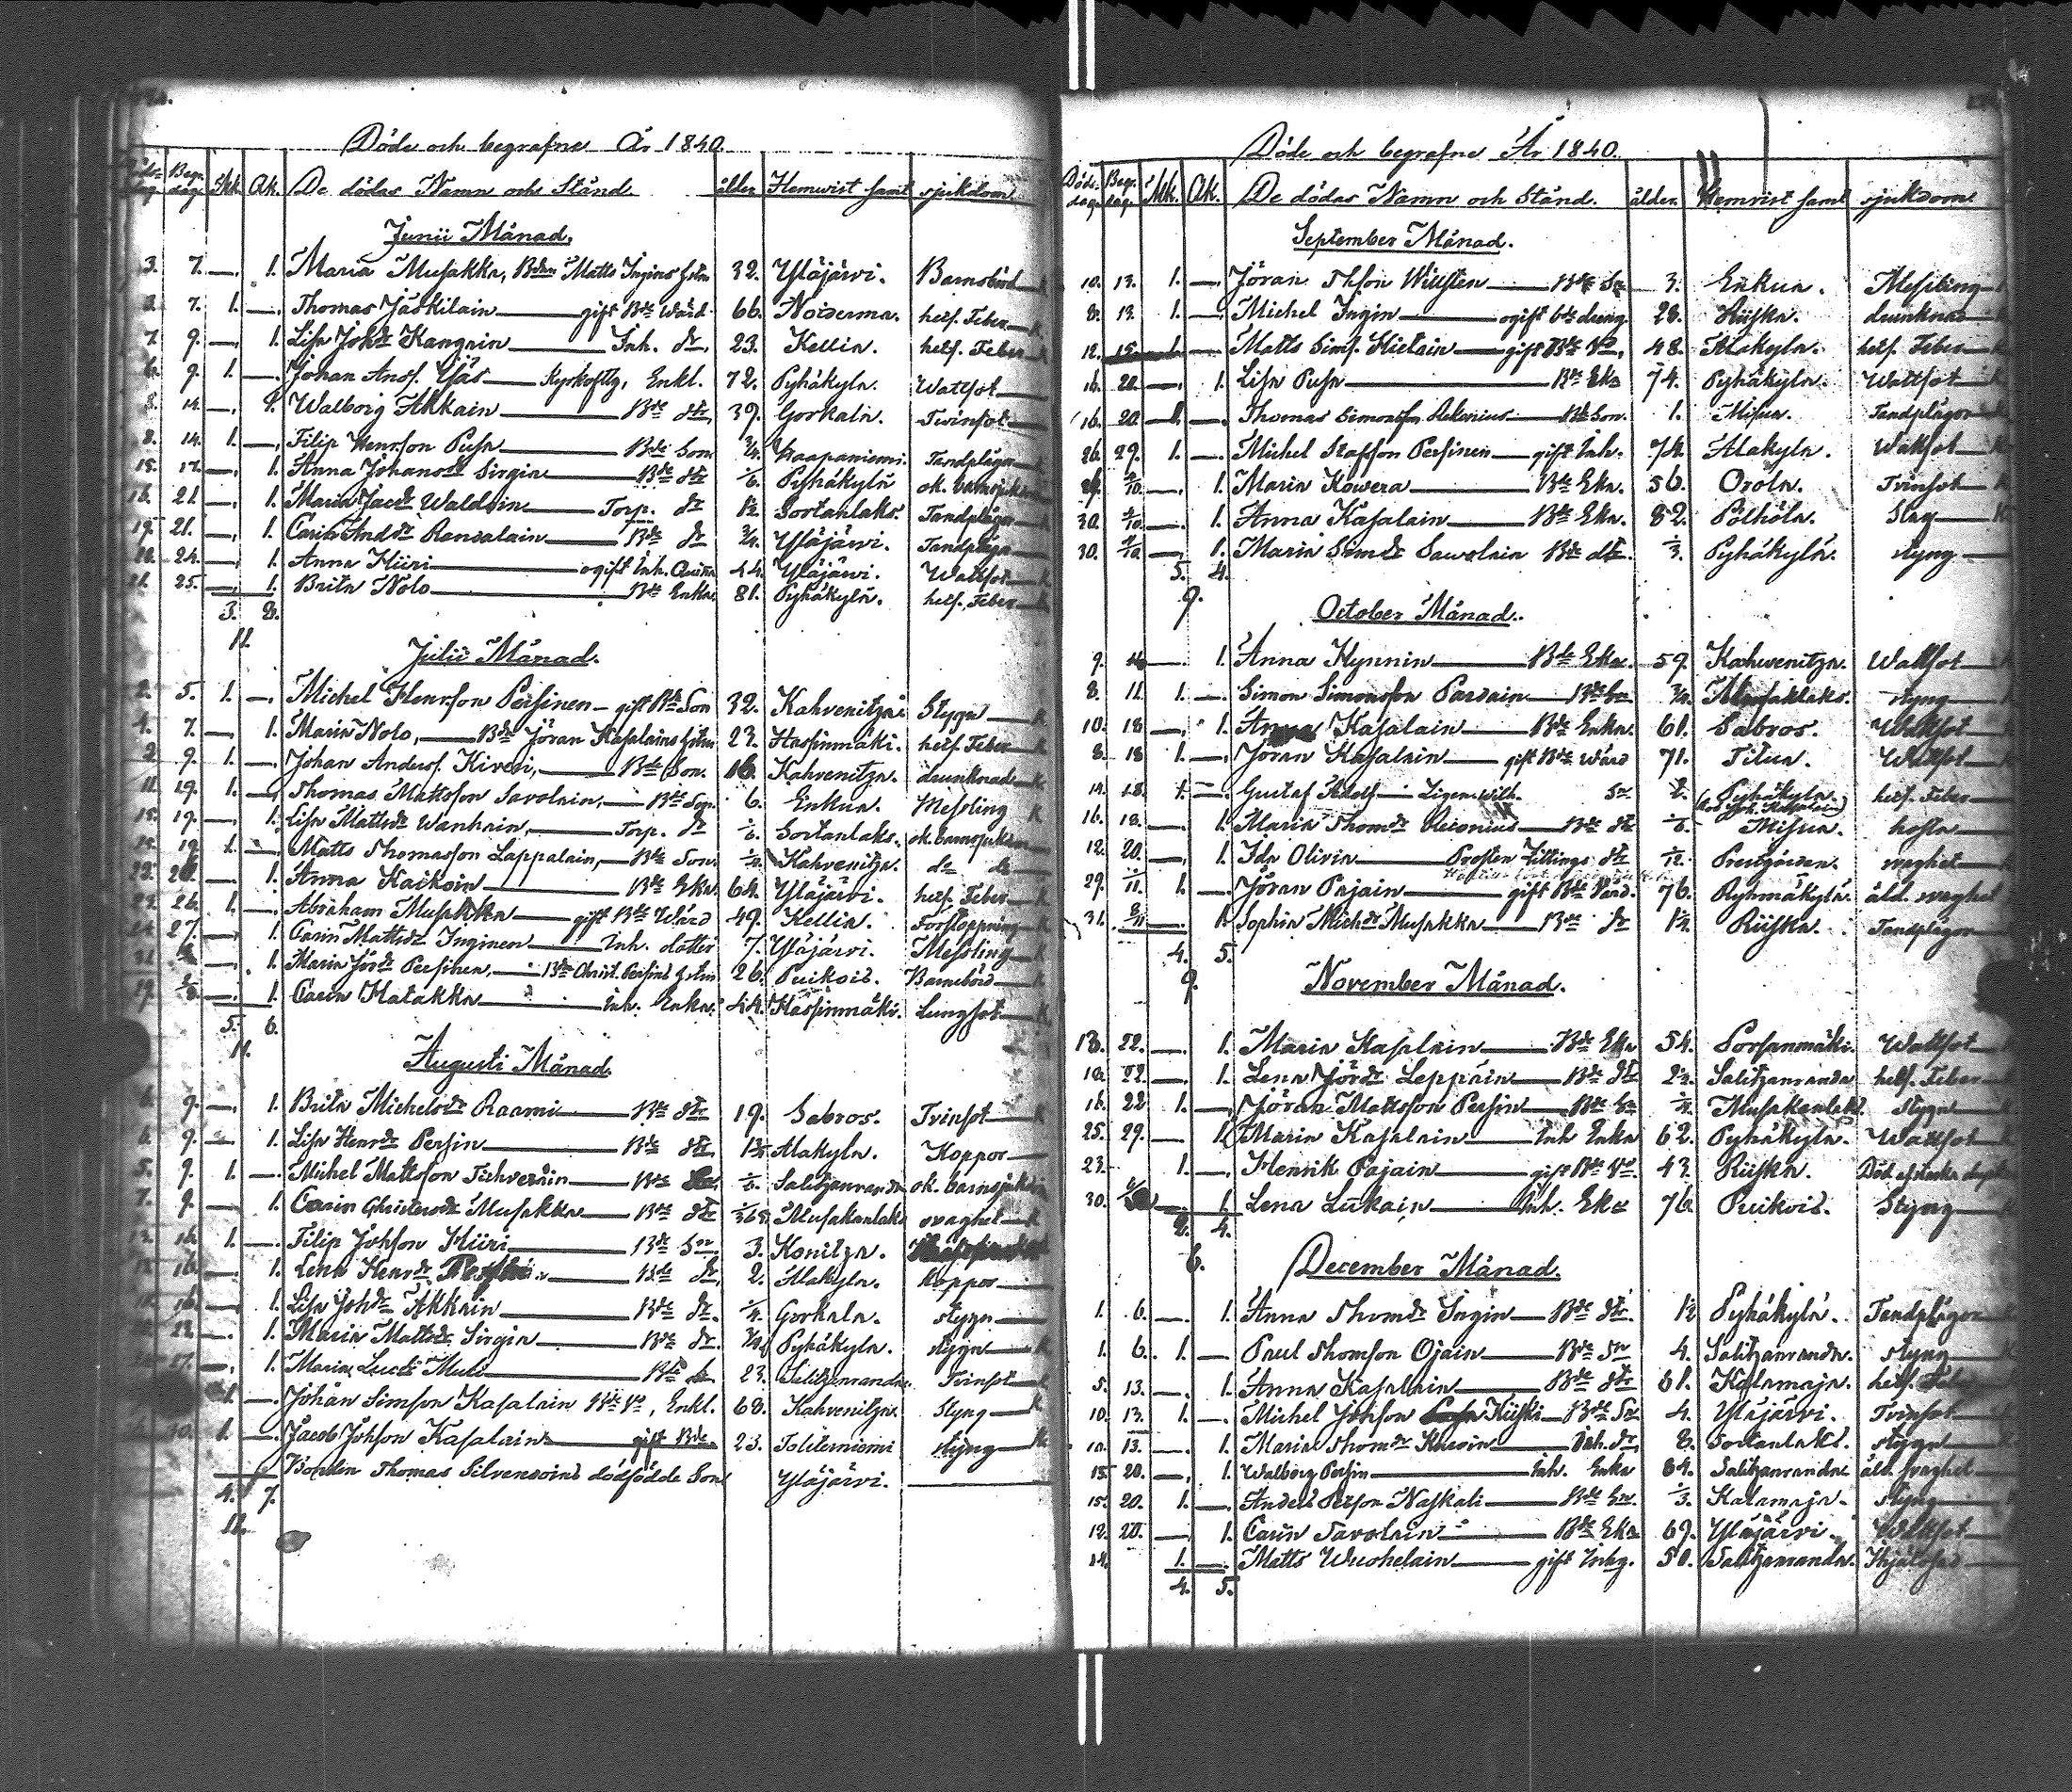 Döde och begrafne År 1840.
Döds- dag Begr. dag Mk. Qk. De dödas Namn och Stånd ålder Hemvist samt sjukdom
Junii Månad.
3. 7. — 1. Maria Musakka, Bdn Matts Ingins hstru 32. Yläjärvi. Barnsbörd
2. 7. 1. — Thomas Jäskilain gift Bde Wärd 66. Noiderma. hets. Feber
7. 9. — 1. Lisa Johsdr Kangain Inh. dr. 23. Kellia. hets. Feber
6. 9. 1. — Johan Ansf. Enkl. 72. Pyhäkylä. Wattsot
8. 14. — 1. Walborg Akkain Bde dtr 39. Gorkala. Tvinsot
8. 14. 1. — Filip Henrsson Pusa Bde Son Haapaniemi. Tandplågor
15. 17. — 1. Anna Johansdr Sirgin Bde dtr Pyhäkylä ok. barnsjukdom
16. 21. — 1. Maria Jacdr Torp. dr 1½ Sortanlaks. Tandplågor
19. 21. — 1. Carin Andsdr Bde dr Yläjärvi. Tandplågor
20. 24. — 1. Anna Hiiri ogift Inh. Qvinna 44. Yläjärvi. Wattsot
21. 25. — 1. Brita Nolo Bde Enka 81. Pyhäkylä. hets. Feber
3. 8.
11.
Julii Månad.
2. 5. 1. — Michel Henrsson Persinen gift Bde Son 32. Kahvenitza Stygn
4. 7. — 1. Maria Nolo, Bdn Jöran Kasalains hstru 23. Hassinmäki. hets. Feber
2. 9. 1. — Johan Andersf. Kiveri, Bde Son. 16. Kahvenitza. drunknad
11. 19. 1. — Thomas Mattsson Savolain, Bde Son 6. Enkua. Messling
15. 19. — 1. Lisa Mattsdr Wanhain, Torp. dr Sortanlaks. ok. barnsjukdom
19. 1. — Matts Thomasson Lappalain, Bde Son. Kahvenitza. do do
22. 26. — 1. Anna Kaikoin Bde Enka 64. Yläjärvi. hets. Feber
22. 26. 1. — Abraham Musakka gift Bde Wärd 49. Kellia. Förstoppning
24. 27. — 1. Carin Mattsdr Inginen Inh. dotter 7. Yläjärvi. Messling
— 1. Maria Jörsdr Persinen, Bdn Christ. Persins hstru 26. Puikois. Barnsbörd
19. — 1. Carin Hatakka Inh. Enka. 44. Hassinmäki. Lungsot
5. 6.
11.
Augusti Månad
6. 9. — 1. Brita Michelsdr Raami Bde dtr 19. Sabros. Tvinsot
6. 9. — 1. Lisa Henrsdr Persin Bde dtr. Alakylä. Koppor
5. 9. 1. — Michel Mattsson Tiihvenain Bde Salitzanranda ok. barnsjukdom
7. 9. — 1. Carin Christersdr Musakka Bde dtr Musakanlaks svaghet
16. 1. — Filip Johsson Hiiri Bde Sn. 3. Konitza.
16. — 1. Lena Henrsdr Bde dr. 2. Alakylä. Koppor
16. — 1. Lisa Johsdr Akkain Bde dr. Gorkala. stygn
23. — 1. Maria Mattsdr Sirgin Bde dr. Pyhäkylä. stygn
27. — 1. Maria Bde 23. Salitzanranda. Tvinsot
1. — Johan Simsson Kasalain Bde , Enkl. 68. Kahvenitza. Styng
30. 1. — Jacob Johsson Kasalain gift Bde. 23. styng
Bonden Thomas Silvensoins dödfödde Son Yläjärvi.
4. 7.
11.
Döde och begrafne År 1840.
Döds- dag Begr. dag Mk. Qk. De dödas Namn och Stånd. ålder. Hemvist samt sjukdom.
September Månad.
10. 13. 1. — Jöran Thsson Bde Sn 3. Enkua. Messling
8. 13. 1. — Michel Ingin ogift bde dräng. 28. Kiiska. drunknad
12. 15. 1. — Matts Simf. Hietain gift Bde 48. Alakylä. hets. Feber
16. 20. — 1. Lisa Pusa Bde Eka 74. Pyhäkylä. Wattsot
16. 20. 1. — Thomas Simonsson Bde Son. 1. Misua. Tandplågor
26. 29. 1. — Michel Staffson Persinen gift Inh. 74. Alakylä. Wattsot
4/10 — 1. Maria Kowera Bde Eka. 56. Orola. Tvinsot
30. 4/10 — 1. Anna Kasalain Bde Eka. 82. Pölhölä. Slag
30. 4/10 — 1. Maria Simsdr Sawolain Bde dtr. 1/3. Pyhäkylä. styng
5. 4.
9.
October Månad.
9. — 1. Anna Hynnin Bde Eka. 59. Kahvenitza. Wattsot
8. 11. 1. — Simon Simonsson Pardain Bde Sn Musakanlaks. styng
10. 18. — 1. Anna Kasalain Bde Enka. 61. Sabros. Wattsot
8. 18 1. — Jöran Kasalain gift Bde Wärd 71. Tilua. Wattsot
14. 18. 1. — Gustaf Adolf Sn Pyhäkylä. hets. Feber
16. 18. — 1. Maria Thomsdr Bde dtr Misua. hosta
12. 20. — 1. Ida Olivia Prosten Zittings dtr 1/12. Prestgården. svaghet
29. 1/11. 1. — Jöran Pajain gift Bde Wärd. 76. Ryhmäkylä. åld. svaghet
31. 8/11. — 1. Sophia Michsdr Musakka Bde dr 1½. Riiska. Tandplågor
4. 5.
9.
November Månad.
13. 22. — 1. Maria Kasalain Bde Eka 54. Porsanmäki. Wattsot
10. 22. — 1. Lena Jörsdr Leppäin Bde dtr Salitzanranda hets. Feber
16. 22 1. — Jöran Mattsson Persin Bde Sn Musakanlaks. stygn
25. 29. — 1. Maria Kasalain Inh Enka 62. Pyhäkylä. Wattsot
23. 1. — Henrik Pajain gift Bde 43. Riiska.
30. — 1. Lena Liikain Inh. Eka 76. Puikois. Styng
2. 4.
6.
December Månad.
1. 6. — 1. Anna Thomsdr Ingin Bde dtr. 1½ Pyhäkylä. Tandplågor
1. 6. 1. — Paul Thomsson Ojain Bde Sn 4. Salitzanranda. styng
5. 13. — 1. Anna Kasalain Bde dtr 61. Kalamaja. hets. Feber
10. 13. 1. — Michel Johsson Kiiski Bde Sn 4. Yläjärvi. Tvinsot
10. 13. — 1. Maria Thomsdr Inh. dr. 8. Sortanlaks. stygn
15. 20. — 1. Walborg Persin Inh. Enka 64. Salitzanranda åld. svaghet
15. 20. 1. — Anders Persson Naskali Bde Sn. 1/3. Kalamaja. styng
12. 20. — 1. Carin Savolain Bde Eka 69. Yläjärvi. Wattsot
14. 1. — Matts Wuohelain gift Inhg. 50. Salitzanranda.
4. 5.